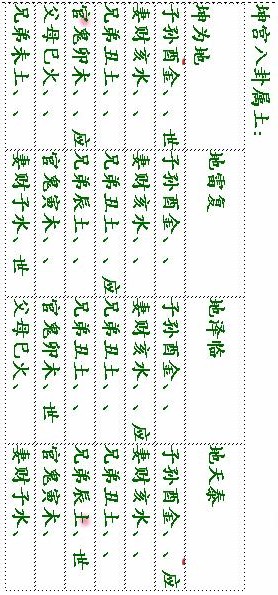 坤宫八卦属土：
坤为地 地雷复 地泽临 地天泰
子孙酉金、、世 子孙酉金、、 子孙酉金、、 子孙酉金、、应
妻财亥水、、 妻财亥水、、 妻财亥水、、应 妻财亥水、、
兄弟丑土、、 兄弟丑土、、应 兄弟丑土、、 兄弟丑土、、
官鬼卯木、、应 兄弟辰土、、 兄弟丑土、、 兄弟辰土、世
父母巳火、、 官鬼寅木、、 官鬼卯木、世 官鬼寅木、
兄弟未土、、 妻财子水、世 父母巳火、 妻财子水、